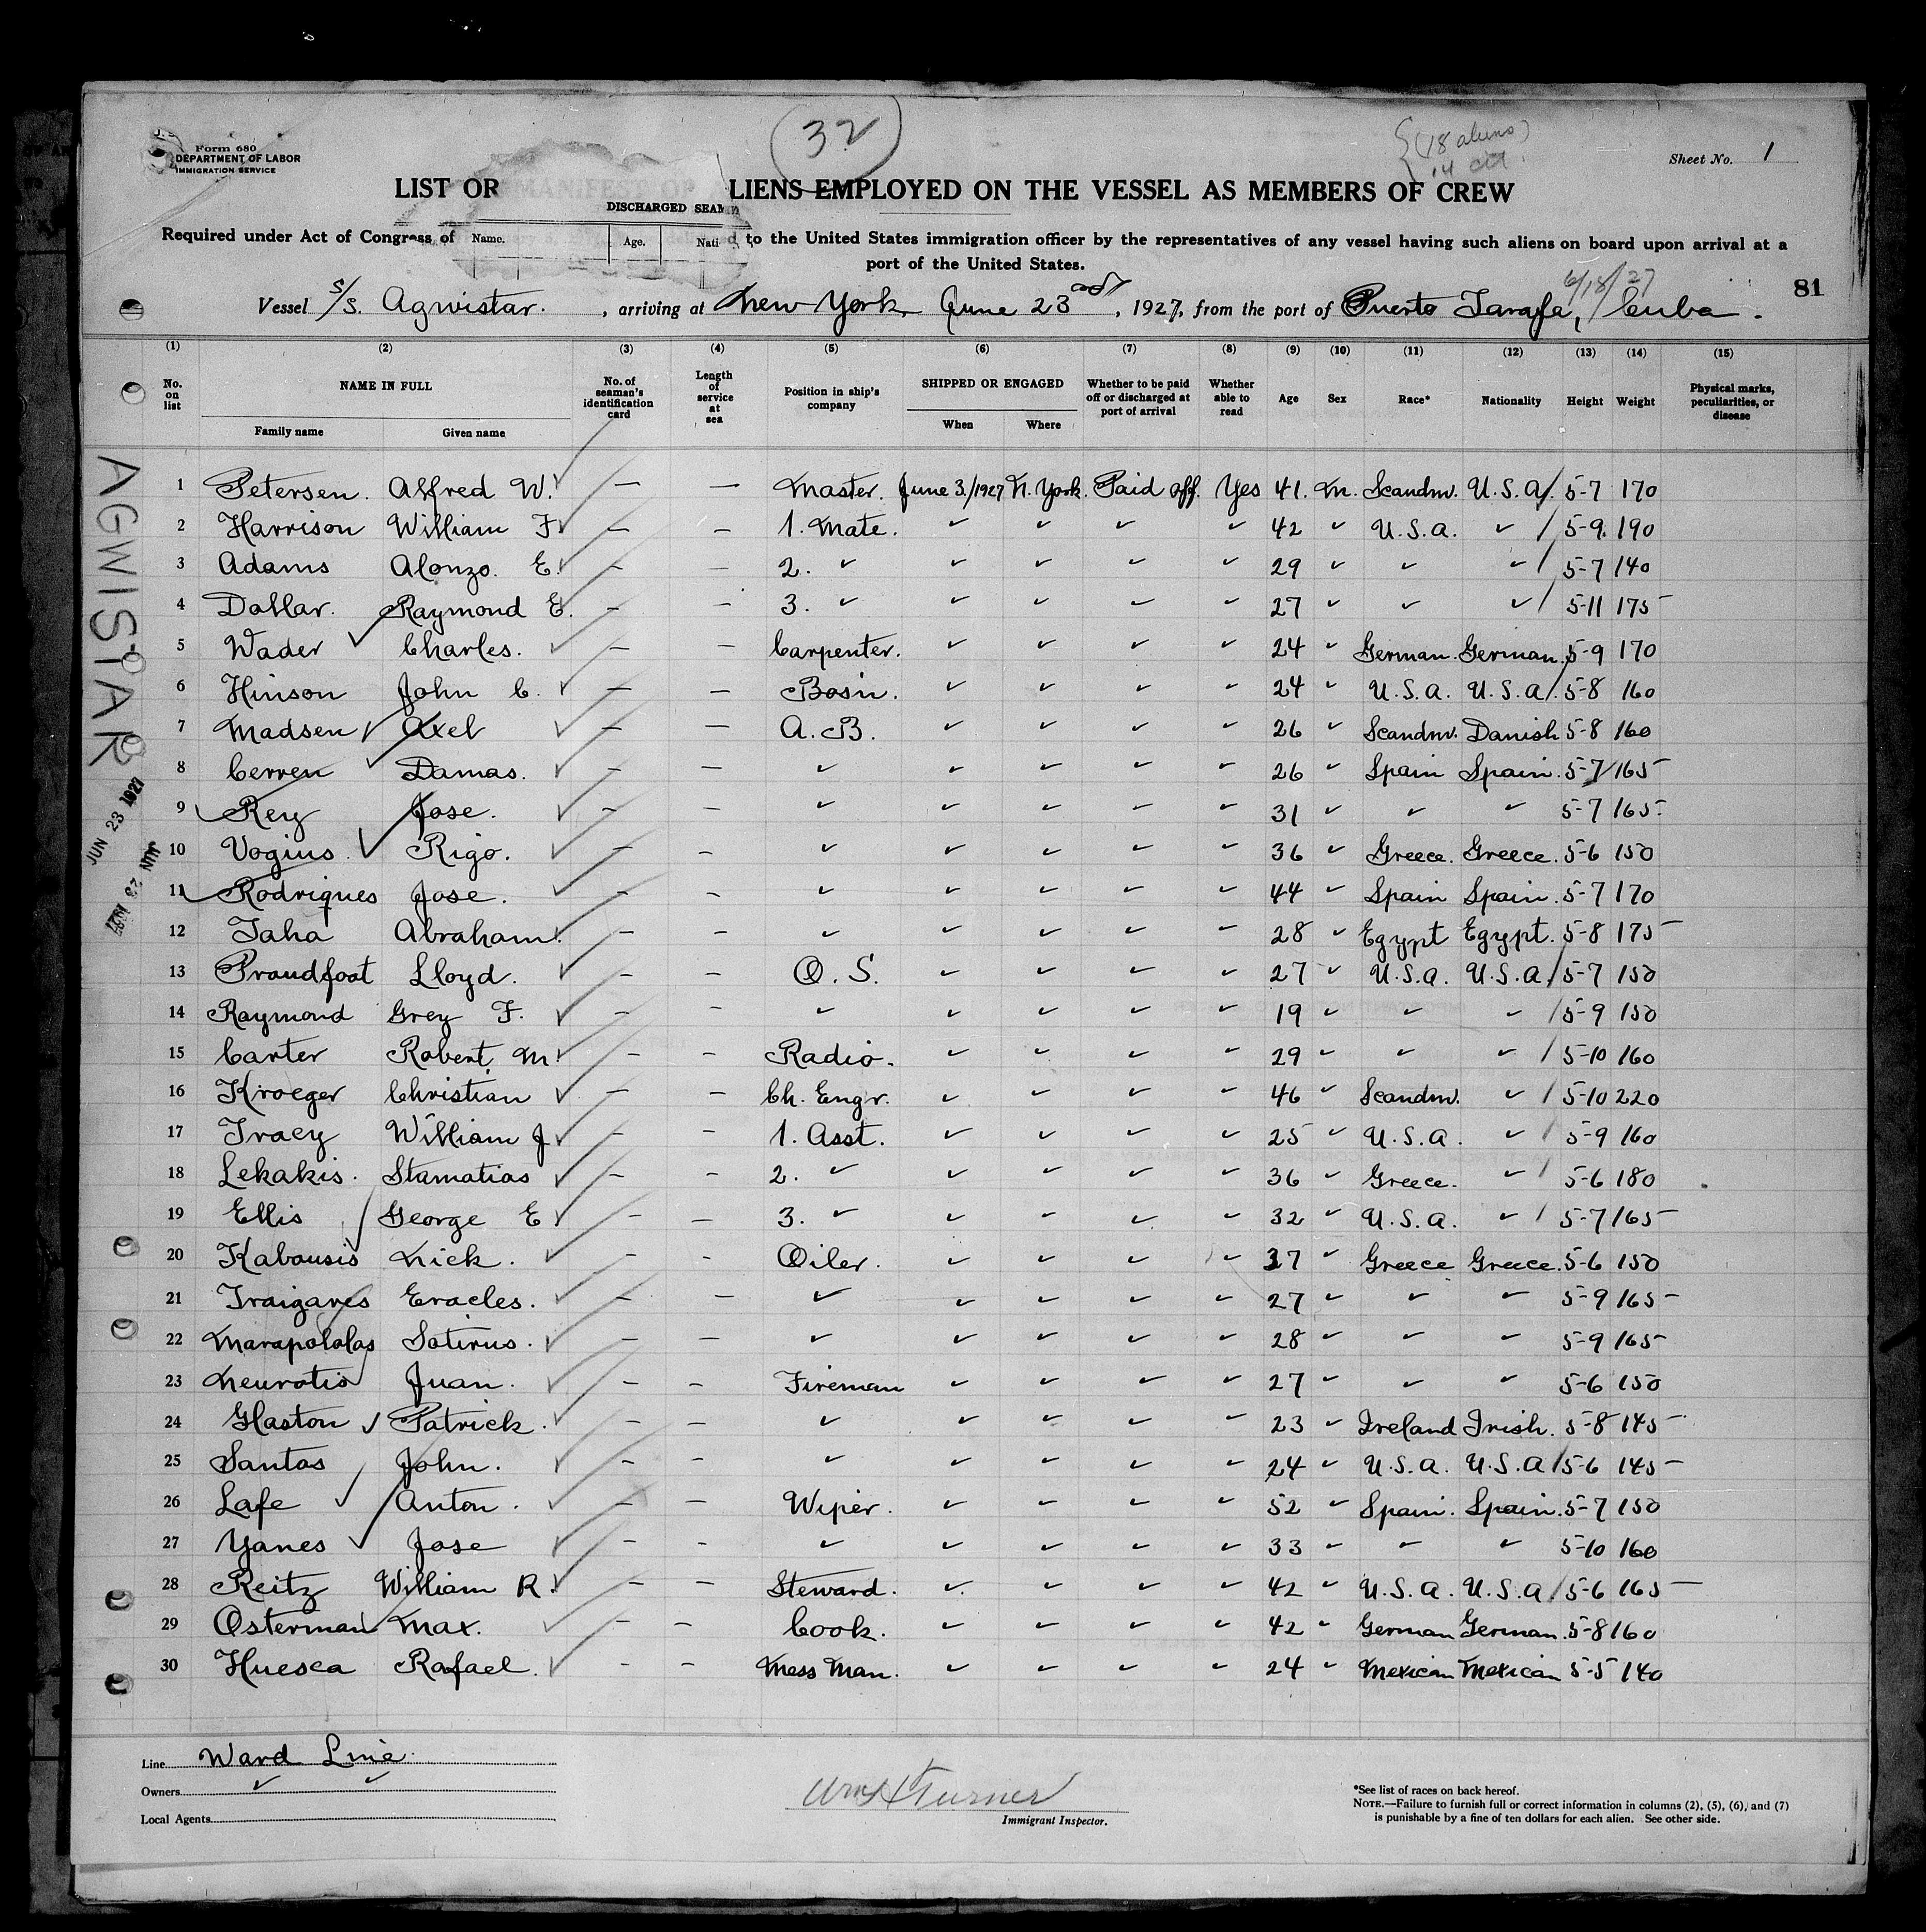 32
(18 aliens)
14 cit.
Form 680
DEPARTMENT OF LABOR
IMMIGRATION SERVICE
Sheet No. 1
LIST OR MANIFEST OF ALIENS EMPLOYED ON THE VESSEL AS MEMBERS OF CREW
DISCHARGED SEAM
Name. Age. Nati
Required under Act of Congress of d to the United States immigration officer by the representatives of any vessel having such aliens on board upon arrival at a
port of the United States.
6/18/27
81
Vessel S/S. Agwistar. , arriving at New York, June 23rd, 1927, from the port of Puerto Tarafa, Cuba.
(1) (2) (3) (4) (5) (6) (7) (8) (9) (10) (11) (12) (13) (14) (15)
No. on list NAME IN FULL Family name Given name No. of seaman's identification card Length of service at sea Position in ship's company SHIPPED OR ENGAGED When Where Whether to be paid off or discharged at port of arrival Whether able to read Age Sex Race* Nationality Height Weight Physical marks, peculiarities, or disease
AGWISTAR
JUN 23 1927
JUN 23 1927
1 Petersen. Alfred W. — — Master. June 3./1927 N. York. Paid off. Yes 41. M. Scandnv. U.S.A. 5-7 170
2 Harrison William F. — — 1. Mate. ✓ ✓ ✓ ✓ 42 ✓ U.S.A. ✓ 5-9. 190
3 Adams Alonzo. E. — — 2. ✓ ✓ ✓ ✓ ✓ 29 ✓ ✓ ✓ 5-7 140
4 Dollar. Raymond E. — — 3. ✓ ✓ ✓ ✓ ✓ 27 ✓ ✓ ✓ 5-11 175
5 Wader Charles. — — Carpenter. ✓ ✓ ✓ ✓ 24 ✓ German. German. 5-9 170
6 Hinson John C. — — Bos'n. ✓ ✓ ✓ ✓ 24 ✓ U.S.A. U.S.A. 5-8 160
7 Madsen Axel — — A.B. ✓ ✓ ✓ ✓ 26 ✓ Scandnv. Danish 5-8 160
8 Cerren Damas. — — ✓ ✓ ✓ ✓ ✓ 26 ✓ Spain Spain. 5-7 165
9 Rey Jose. — — ✓ ✓ ✓ ✓ ✓ 31 ✓ ✓ ✓ 5-7 165.
10 Vogius. Rigo. — — ✓ ✓ ✓ ✓ ✓ 36 ✓ Greece. Greece. 5-6 150
11 Rodriques Jose. — — ✓ ✓ ✓ ✓ ✓ 44 ✓ Spain Spain. 5-7 170
12 Taha Abraham. — — ✓ ✓ ✓ ✓ ✓ 28 ✓ Egypt Egypt. 5-8 175
13 Proudfoot Lloyd. — — O.S. ✓ ✓ ✓ ✓ 27 ✓ U.S.A. U.S.A. 5-7 150
14 Raymond Grey F. — — ✓ ✓ ✓ ✓ ✓ 19 ✓ ✓ ✓ 5-9 150
15 Carter Robert M. — — Radio. ✓ ✓ ✓ ✓ 29 ✓ ✓ ✓ 5-10 160
16 Kroeger Christian — — Ch. Engr. ✓ ✓ ✓ ✓ 46 ✓ Scandnv. ✓ 5-10 220
17 Tracy William J. — — 1. Asst. ✓ ✓ ✓ ✓ 25 ✓ U.S.A. ✓ 5-9 160
18 Lekakis. Stamatias — — 2. ✓ ✓ ✓ ✓ ✓ 36 ✓ Greece. ✓ 5-6 180
19 Ellis George E — — 3. ✓ ✓ ✓ ✓ ✓ 32 ✓ U.S.A. ✓ 5-7 165
20 Kabousis Nick. — — Oiler. ✓ ✓ ✓ ✓ 37 ✓ Greece Greece. 5-6 150
21 Traigares Eracles. — — ✓ ✓ ✓ ✓ ✓ 27 ✓ ✓ ✓ 5-9 165
22 Marapololas Sotirus. — — ✓ ✓ ✓ ✓ ✓ 28 ✓ ✓ ✓ 5-9 165
23 Neurotis Juan. — — Fireman ✓ ✓ ✓ ✓ 27 ✓ ✓ ✓ 5-6 150
24 Glaston Patrick. — — ✓ ✓ ✓ ✓ ✓ 23 ✓ Ireland Irish. 5-8 145
25 Santos John. — — ✓ ✓ ✓ ✓ ✓ 24 ✓ U.S.A. U.S.A 5-6 145
26 Lafe Anton. — — Wiper. ✓ ✓ ✓ ✓ 52 ✓ Spain. Spain. 5-7 150
27 Yanes Jose — — ✓ ✓ ✓ ✓ ✓ 33 ✓ ✓ ✓ 5-10 160
28 Reitz William R. — — Steward. ✓ ✓ ✓ ✓ 42 ✓ U.S.A. U.S.A 5-6 165
29 Osterman Max. — — Cook. ✓ ✓ ✓ ✓ 42 ✓ German German. 5-8 160
30 Huesca Rafael. — — Mess Man. ✓ ✓ ✓ ✓ 24 ✓ Mexican Mexican 5-5 140
Line Ward Line.
Owners ✓ ✓
Local Agents
Wm H Turner
Immigrant Inspector.
*See list of races on back hereof.
NOTE.—Failure to furnish full or correct information in columns (2), (5), (6), and (7)
is punishable by a fine of ten dollars for each alien. See other side.